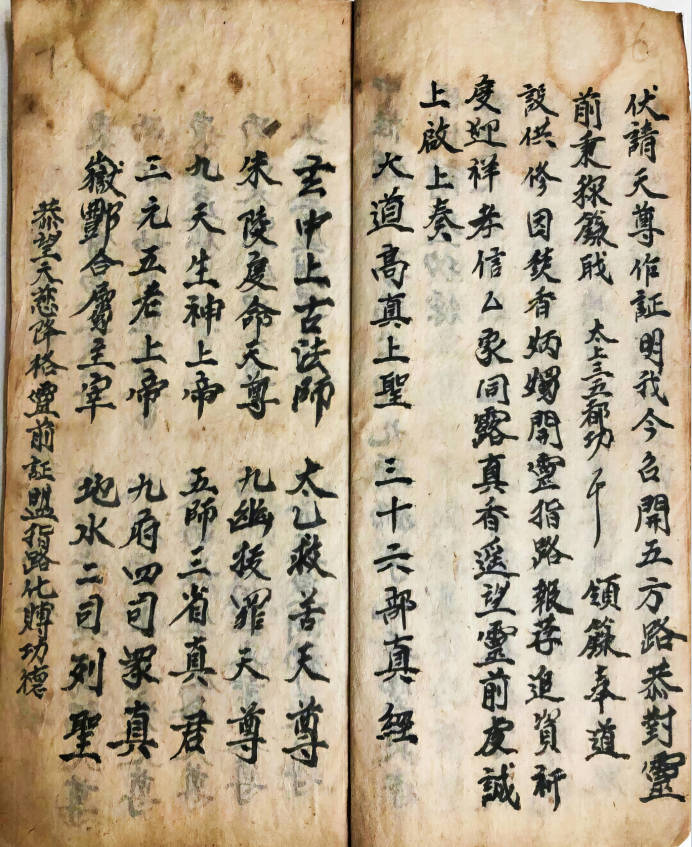 伏請天尊作証明我今召開五方路恭對靈
前秉録職 太上三五都功 領籙奉道
設供修因焚香炳燭開靈指路報荐追資祈
度迎祥孝信厶衆同露真香遥望靈前虔誠
上啟上奏
大道高真上聖 三十六部真經
玄中上古法師 太乙救苦天尊
朱陵度命天尊 九幽拔罪天尊
九天生神上帝 五師三省真君
三元五老上帝 九府四司眾真
嶽酆合屬主宰 地水二司列聖
恭望天慈降格靈前証盟指路化賻功德
6